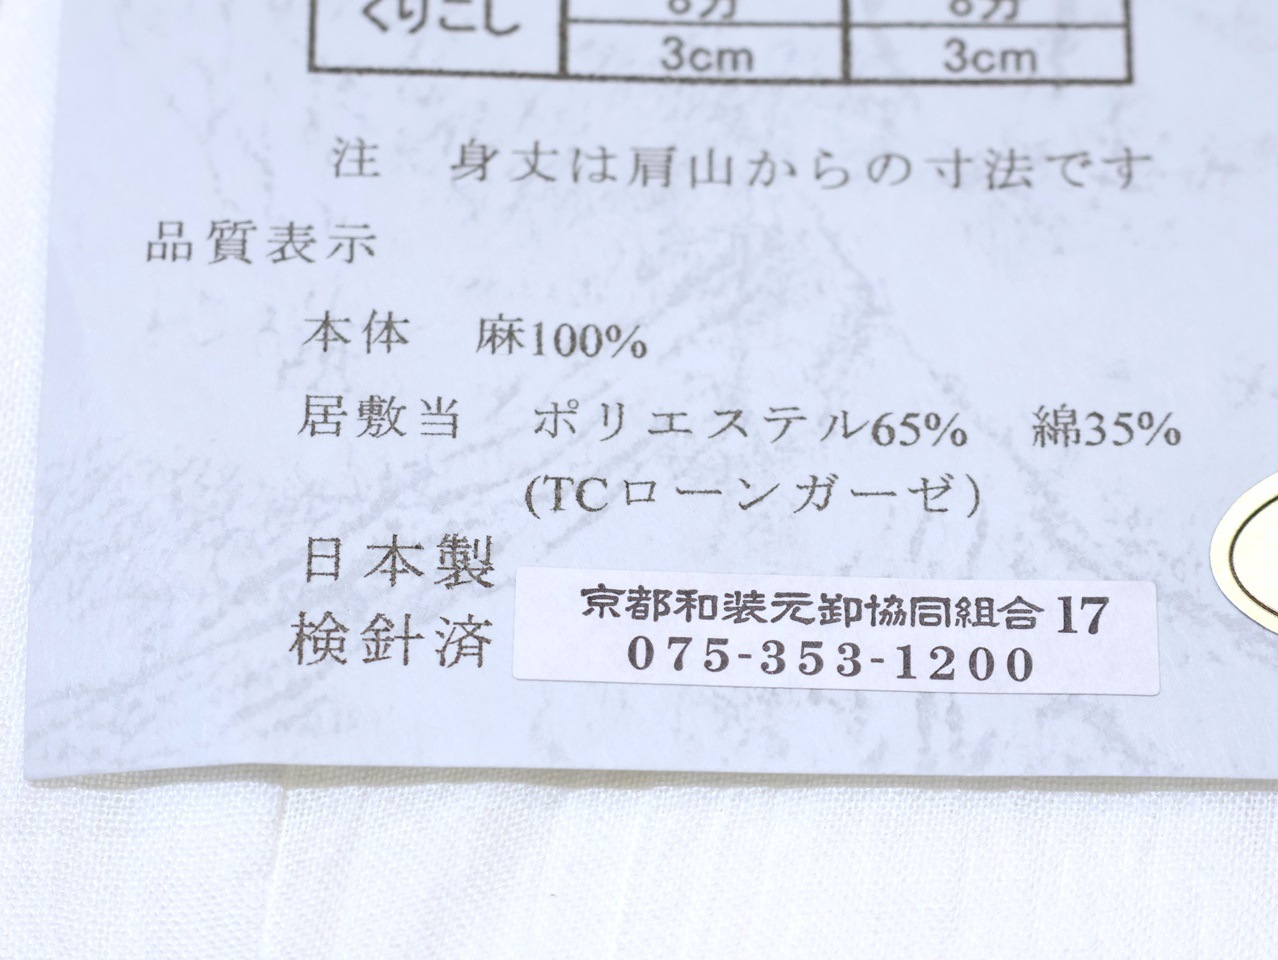 くりこし 8分 8分
3cm 3cm
注 身丈は肩山からの寸法です
品質表示
本体 麻100%
居敷当 ポリエステル65% 綿35%
(TCローンガーゼ)
日本製
検針済
京都和装元卸協同組合 17
075-353-1200